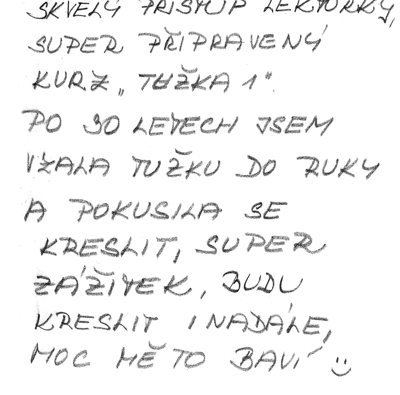 SKVĚLÝ PŘÍSTUP LEKTORKY,
SUPER PŘIPRAVENÝ
KURZ „TUŽKA 1“.
PO 30 LETECH JSEM
VZALA TUŽKU DO RUKY
A POKUSILA SE
KRESLIT, SUPER
ZÁŽITEK, BUDU
KRESLIT I NADÁLE,
MOC MĚ TO BAVÍ :)